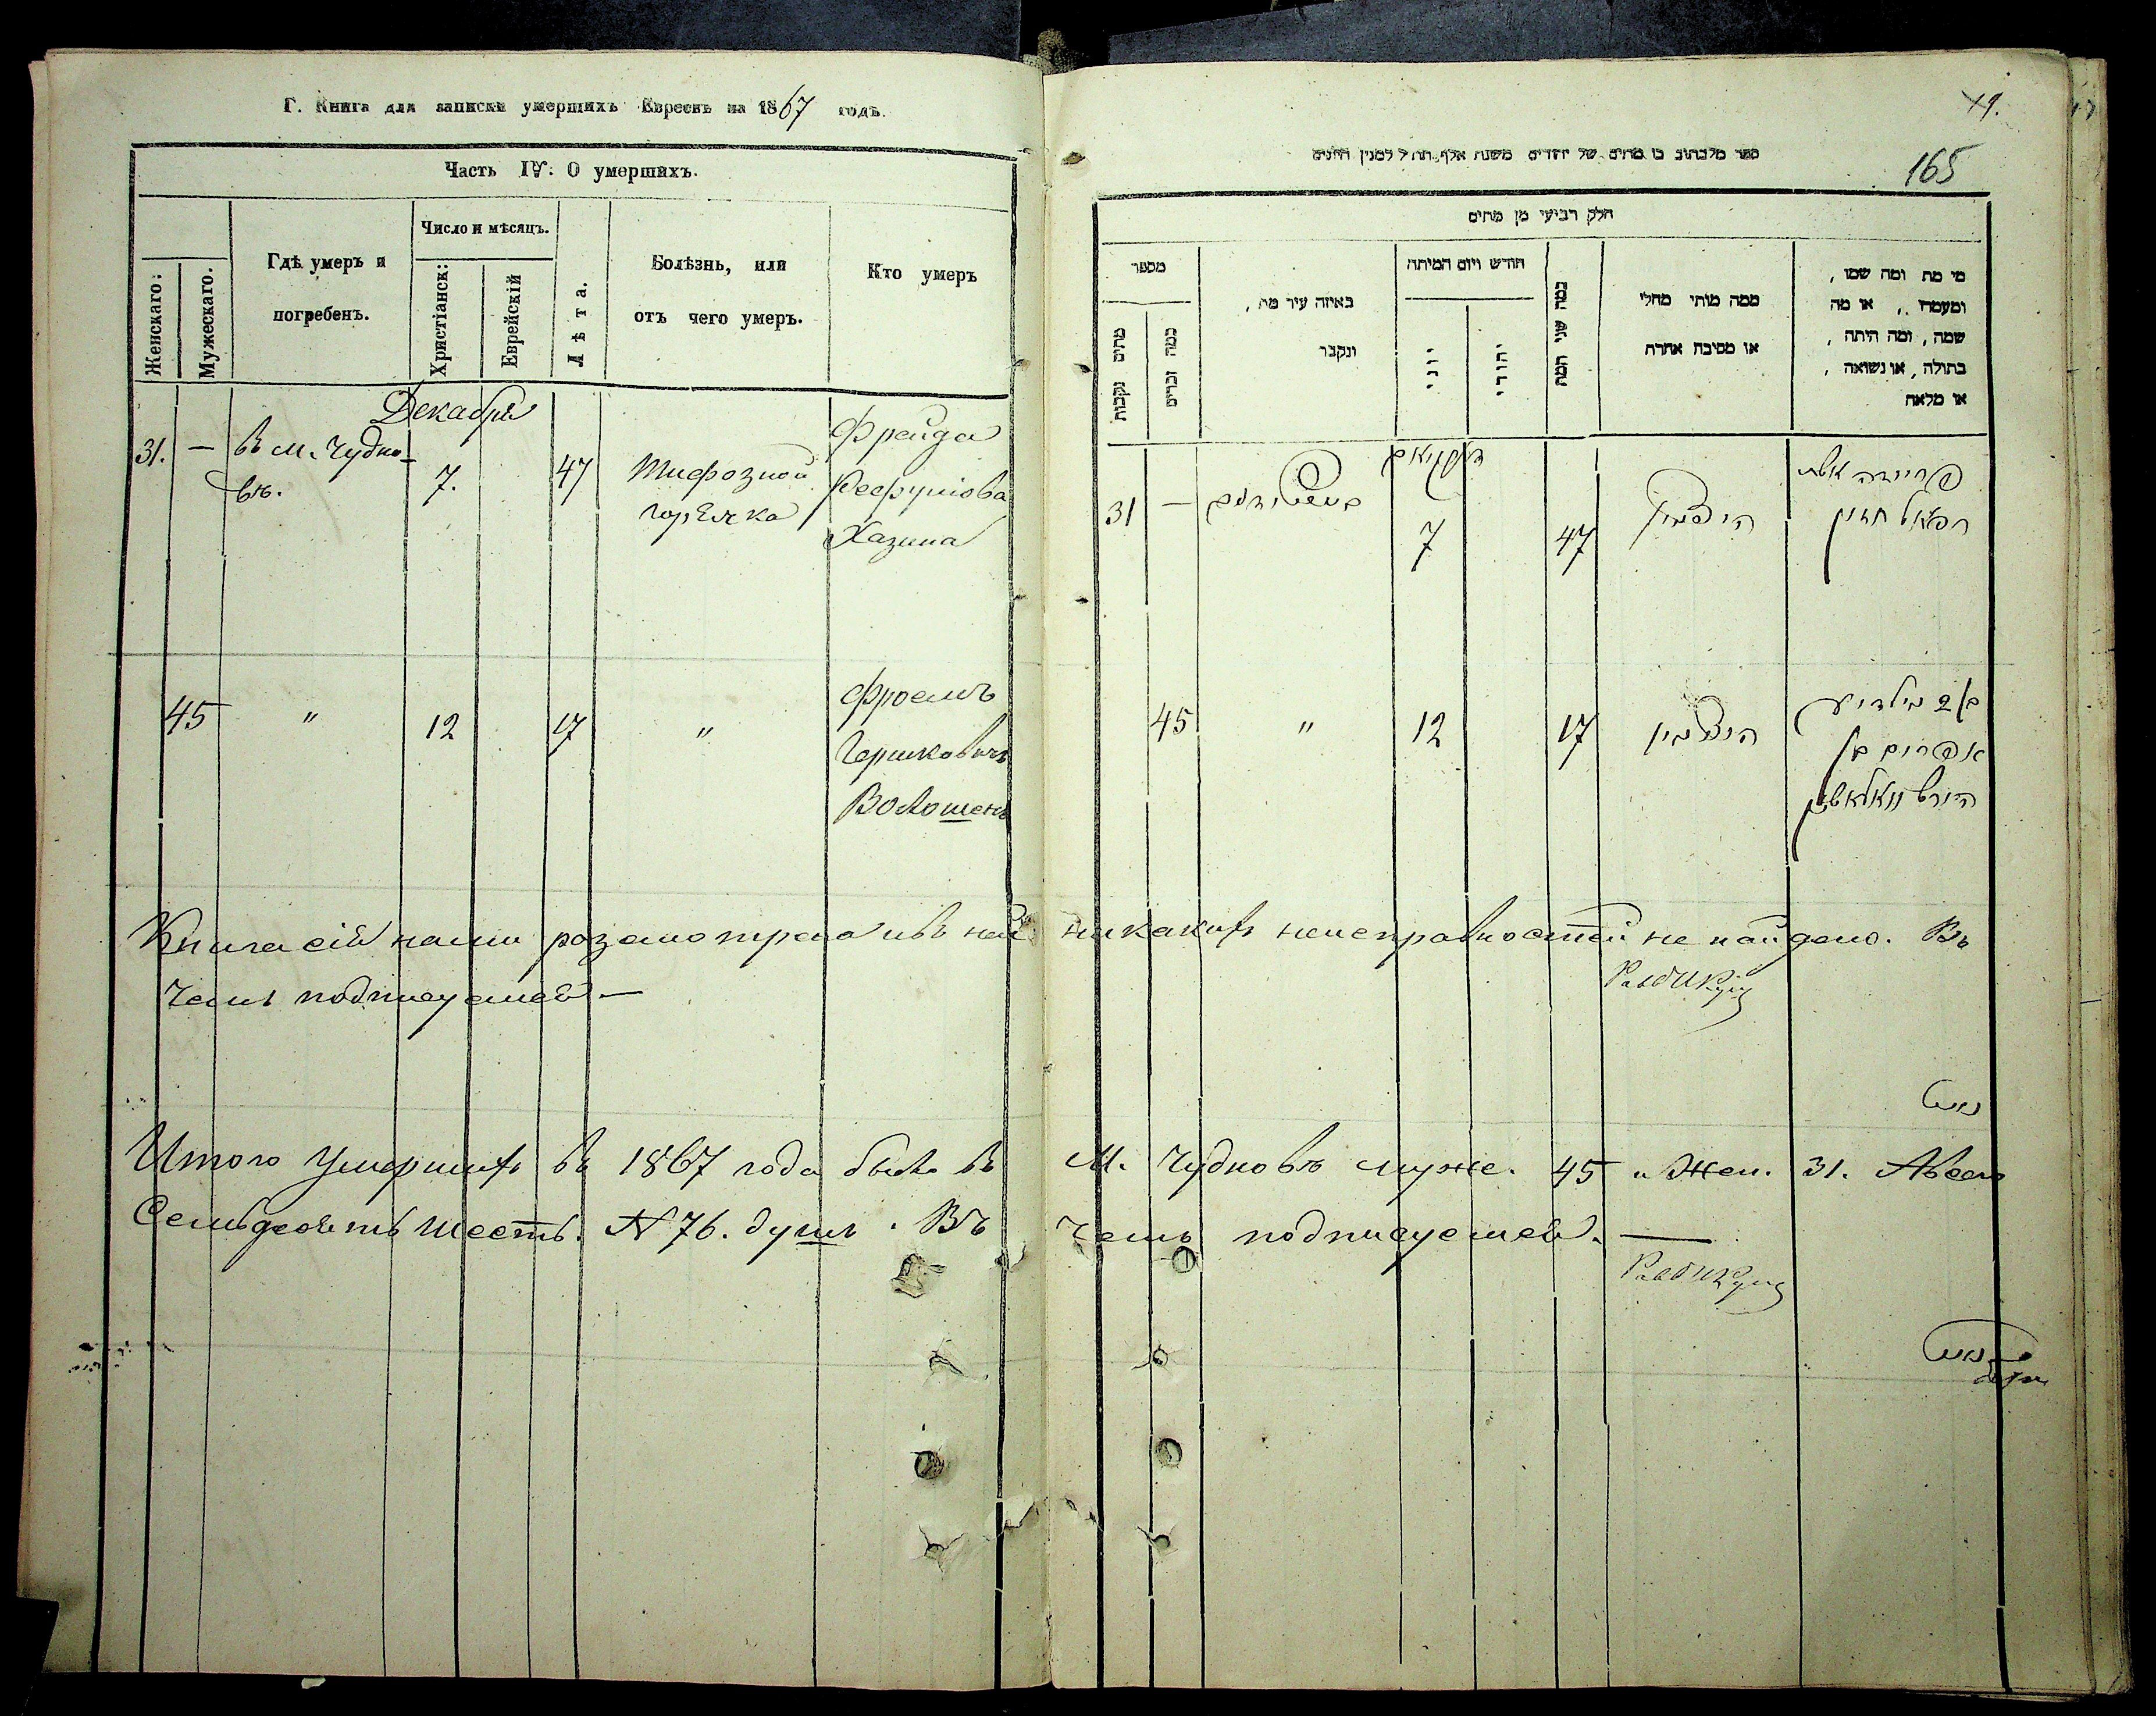 Г. Книга для записки умершихъ Евреевъ на 1867 годъ.
Часть IV: О умершихъ.
Женскаго:
Мужескаго.
Гдѣ умеръ и
погребенъ.
Число и мѣсяцъ.
Христіанск:
Еврейскій
Лѣта.
Болѣзнь, или
отъ чего умеръ.
Кто умеръ
Декабря
31. — въ м. Чудно-
вѣ.
7.
47
Тифозной
горячка
Фрейда
Хазина
45 " 12 17 "
Фроемъ
Гершковичъ
Волошенъ
19.
165
ספר מלכתוב בו מתים של יהודים משנת אלף תת״ל למנין היונים
חלק רביעי מן מתים
מספר
מתים נקבות
כמה זכרים
באיזה עיר מת,
ונקבר
חודש ויום המיתה
יוני
יהודי
כמה שני המת
ממה מותי מחלי
או מסיבה אחרת
מי מת ומה שמו,
ומעמדו ,, או מה
שמה, ומה היתה,
בתולה, או נשואה,
או מלאה
31 —
7
47
פריידה אשת
רפאל חזין
45 " 12 17
אפרים בן
הירש וואלאשין
Книга сія нами розсмотрена и въ ней никакихъ неисправностей не найдено. Въ
чемъ подписуемся —
Итого Умершихъ въ 1867 года было въ М. Чудновѣ муже. 45 и Жен. 31. А всего
Семьдесятъ шесть. N 76. душъ. Въ чемъ подписуемся. —